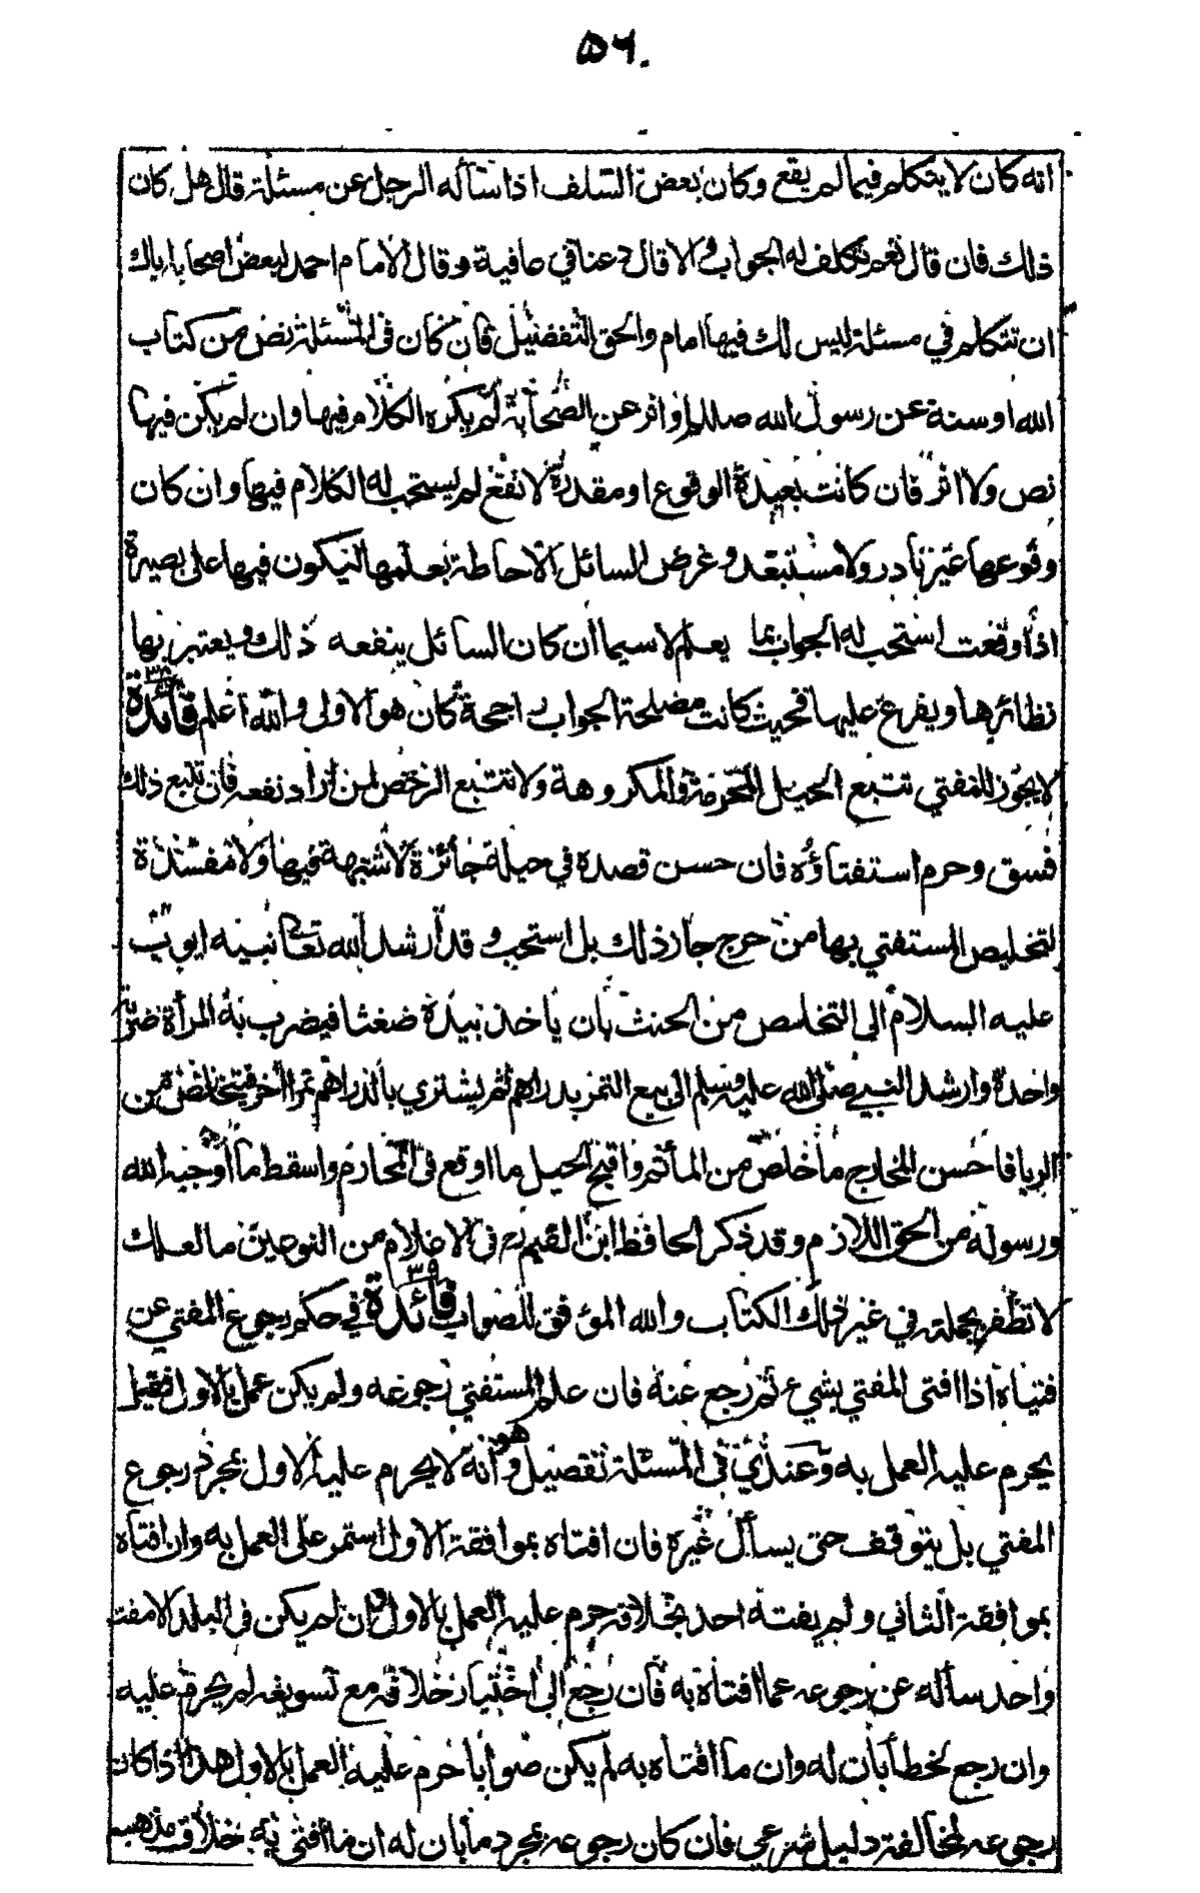 ٥٦.
انه كان لا يتكلم فيما لم يقع وكان بعض السلف اذا سأله الرجل عن مسئلة قال هل كان
ذلك فان قال نعم تكلف له الجواب والا قال دعنا في عافية وقال الامام احمد لبعض اصحابه اياك
ان تتكلم في مسئلة ليس لك فيها امام والحق التفصيل فان كان فى المسئلة نص من كتاب
الله او سنة عن رسول الله صللم او اثر عن الصحابة لم يكره الكلام فيها وان لم يكن فيها
نص ولا اثر فان كانت بعيدة الوقوع او مقدرة لا تقع لم يستحب له الكلام فيها وان كان
وقوعها غير نادر ولا مستبعد وغرض السائل الاحاطة بعلمها ليكون فيها على بصيرة
اذا وقعت استحب له الجواب بما يعلم لا سيما ان كان السائل ينفعه ذلك ويعتبر بها
نظائرها ويفرع عليها فحيث كانت مصلحة الجواب راجحة كان هو الاولى والله اعلم فائدة ٣٨
لا يجوز للمفتي تتبع الحيل المحرمة والمكروهة ولا تتبع الرخص لمن اراد نفعه فان تتبع ذلك
فسق وحرم استفتاؤه فان حسن قصده في حيلة جائزة لا شبهة فيها ولا مفسدة
لتخليص المستفتي بها من حرج جاز ذلك بل استحب وقد ارشد الله تعالى نبيه ايوب
عليه السلام الى التخلص من الحنث بان ياخذ بيده ضغثا فيضرب به المرأة ضربة
واحدة وارشد النبي صلى الله عليه وسلم الى بيع التمر بدراهم ثم يشتري بالدراهم تمرا اخر فيتخلص من
الربا فاحسن المخارج ما خلص من المأثم واقبح الحيل ما اوقع فى المحارم واسقط ما اوجبه الله
ورسوله من الحق اللازم وقد ذكر الحافظ ابن القيم رح فى الاعلام من النوعين ما لعلك
لا تظفر بجملته في غير ذلك الكتاب والله الموفق للصواب فائدة ٣٩ في حكم رجوع المفتي عن
فتياه اذا افتى المفتي بشيء ثم رجع عنه فان علم المستفتي رجوعه ولم يكن عمل بالاول فقيل
يحرم عليه العمل به وعندي فى المسئلة تفصيل وهو انه لا يحرم عليه الاول بمجرد رجوع
المفتي بل يتوقف حتى يسأل غيره فان افتاه بموافقة الاول استمر على العمل به وان افتاه
بموافقة الثاني ولم يفته احد بخلافه حرم عليه العمل بالاول وان لم يكن فى البلد الا مفت
واحد سأله عن رجوعه عما افتاه به فان رجع الى اختيار خلافه مع تسويغه لم يحرم عليه
وان رجع لخطأ بان له وان ما افتاه به لم يكن صوابا حرم عليه العمل بالاول هذا اذا كان
رجوعه لمخالفة دليل شرعي فان كان رجوعه بمجرد ما بان له ان ما افتى به خلاف مذهبه